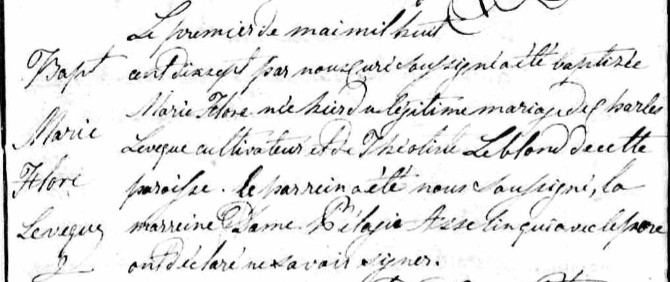 Le premier de mai mil huit
Bapt
cent dix sept par nous curé soussigné a été baptisée
Marie Flore née hier du légitime mariage de Charles
Marie
Leveque cultivateur et de Théotiste Leblond de cette
Flore
paroisse. le parrein a été nous soussigné, la
Leveque
marreine Dame Pélagie Asselin qui avec le pere
ont déclaré ne savoir signer.